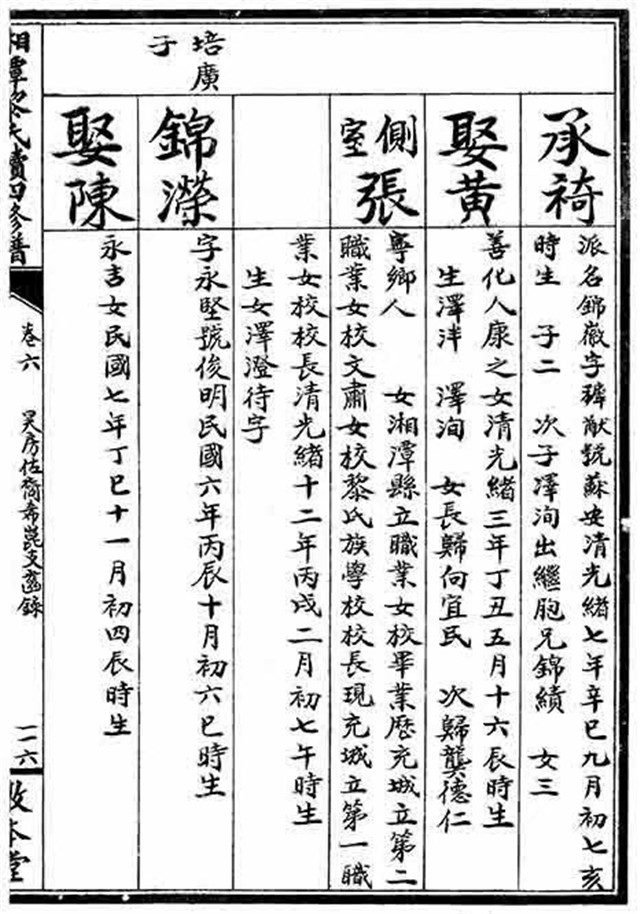 承裿
派名錦徽字瑋猷號蘇安清光緒七年辛巳九月初七亥
時生 子二 次子澤洵出繼胞兄錦績 女三
娶黃
善化人康之女清光緒三年丁丑五月十六辰時生
生澤泮 澤洵 女長歸向宜民 次歸龔德仁
側室張
寧鄉人 女湘潭縣立職業女校畢業歷充城立第二
職業女校文肅女校黎氏族學校校長現充城立第一職
業女校校長清光緒十二年丙戌二月初七午時生
生女澤澄待字
培廣
子
錦濚
字永堅號俊明民國六年丙辰十月初六巳時生
娶陳
永吉女民國七年丁巳十一月初四辰時生
湘潭黎氏續四修譜
卷六
昊房估裔希崑支齒錄
一一六
敦本堂